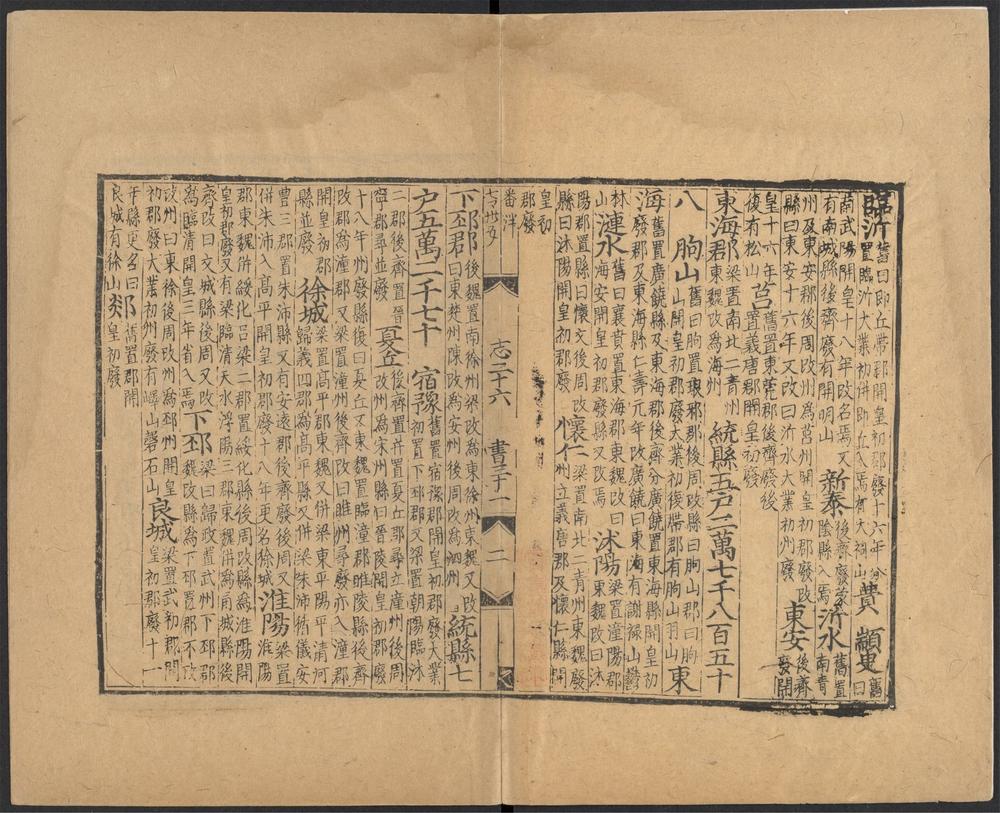 臨沂舊曰即丘帶郡開皇初郡廢十六年分置臨沂大業初併即丘入焉有大祠山費 顓臾舊曰
南武陽開皇十八年改名焉又有南城縣後齊廢有開明山新泰後齊廢蒙陰縣入焉沂水舊置南青
州及東安郡後周改州爲莒州開皇初郡廢改縣曰東安十六年又改曰沂水大業初州廢東安後齊廢開
皇十六年復有松山莒舊置東莞郡後齊廢後置義唐郡開皇初廢
東海郡梁置南北二青州東魏改爲海州統縣五戶二萬七千八百五十
八 朐山舊曰朐置琅邪郡後周改縣曰朐山郡曰朐山開皇初郡廢大業初復帶郡有朐山羽山東
海舊置廣饒縣及東海郡後齊分廣饒置東海縣開皇初廢郡及東海縣仁壽元年改廣饒曰東海有謝祿山鬱
林山漣水舊曰襄賁置東海郡東魏改曰海安開皇初郡廢縣又改焉沭陽梁置潼陽郡東魏改曰沭
陽郡置縣曰懷文後周改縣曰沭陽開皇初郡廢懷仁梁置南北二青州東魏廢州立義唐郡及懷仁縣開
皇初郡廢
志二十六 書三十一 二
下邳郡後魏置南徐州梁改爲東徐州東魏又改曰東楚州陳改爲安州後周改爲泗州統縣七
戶五萬二千七十 宿豫舊置宿豫郡開皇初郡廢大業初置下邳郡又梁置朝陽臨沭
二郡後齊置晉寧郡尋並廢夏丘後齊置并置夏丘郡尋立潼州後周改州爲宋州縣曰晉陵開皇初郡廢
十八年州廢縣復曰夏丘又東魏置臨潼郡睢陵縣後齊改郡爲潼郡又梁置潼州後齊改曰睢州尋廢亦入潼郡
開皇初郡縣並廢徐城梁置高平郡東魏又併梁東平陽平清河歸義四郡爲高平縣又併梁朱沛循儀安
豐三郡置朱沛縣又有安遠郡後齊廢後周又併朱沛入高平開皇初郡廢十八年更名徐城淮陽梁置淮陽
郡東魏併綏化呂梁二郡置綏化縣後周改縣爲淮陽開皇初郡廢又有梁臨清天水浮陽三郡東魏併爲甬城縣後
齊改曰文城縣後周又改爲臨清開皇三年省入焉下邳梁曰歸政置武州下邳郡魏改縣爲下邳置郡不改
改州曰東徐後周改州爲邳州開皇初郡廢大業初州廢有嶧山磬石山良城梁置武初郡開皇初郡廢十一
年縣更名曰良城有徐山郯舊置郡開皇初廢